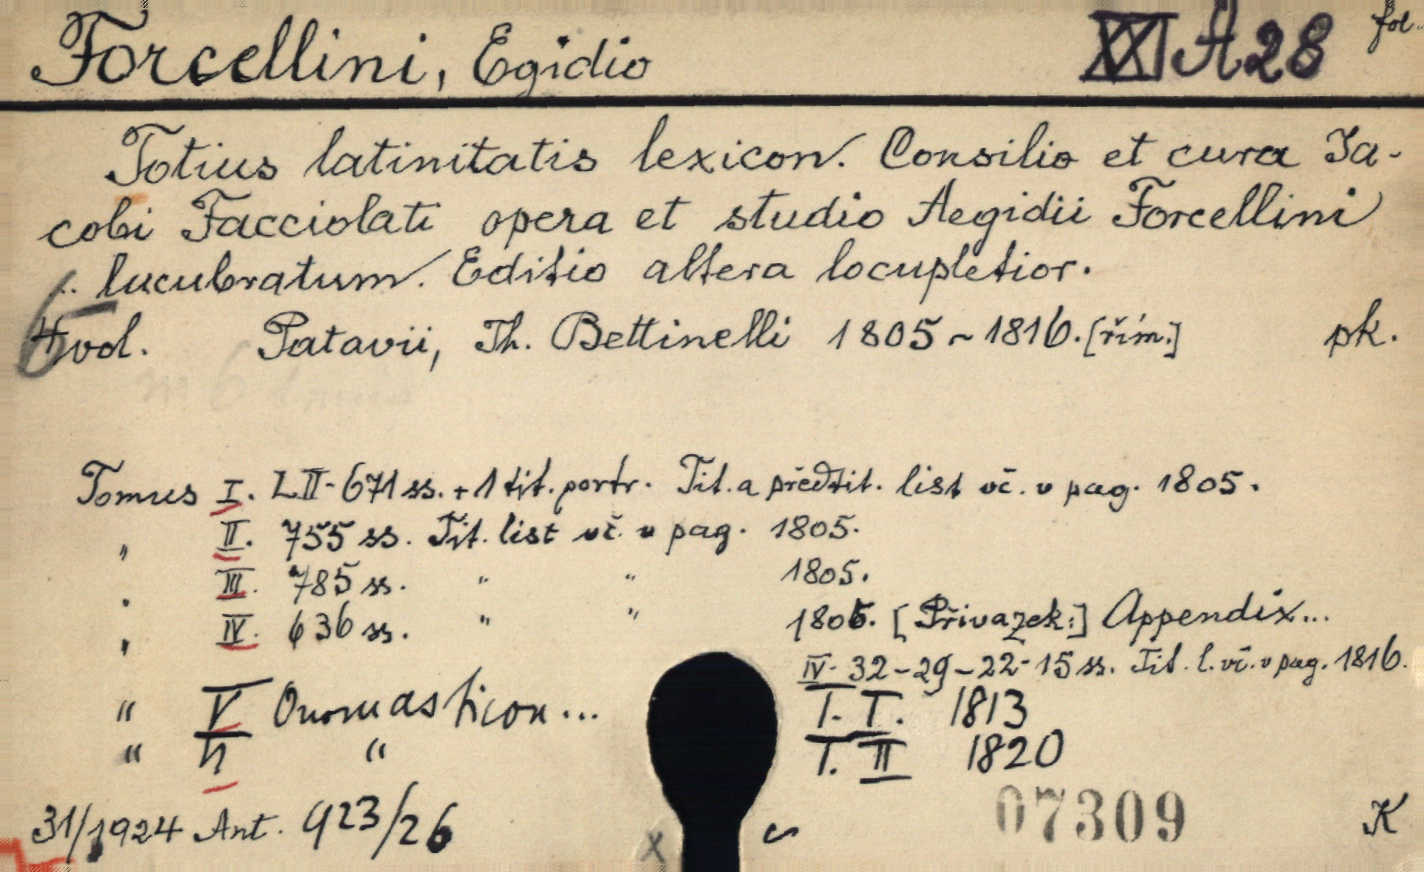 Forcellini, Egidio XXI A 28 fol.
Totius latinitatis lexicon. Consilio et cura Ja-
cobi Facciolati opera et studio Aegidii Forcellini
.. lucubratum. Editio altera locupletior.
6 4 vol. Patavii, Th. Bettinelli 1805~1816. [řím.] pk.
Tomus I. LII-671 ss. + 1 tit. portr. Tit. a předtit. list vč. v pag. 1805.
„ II. 755 ss. Tit. list vč. v pag. 1805.
„ III. 785 ss. " " 1805.
„ IV. 636 ss. " " 1805. [Přivazek:] Appendix...
IV-32-29-22-15 ss. Tit. l. vč. v pag. 1816.
" V Onomasticon... T. I. 1813
" " T. II 1820
31/1924 Ant. 923/26 x 07309 K